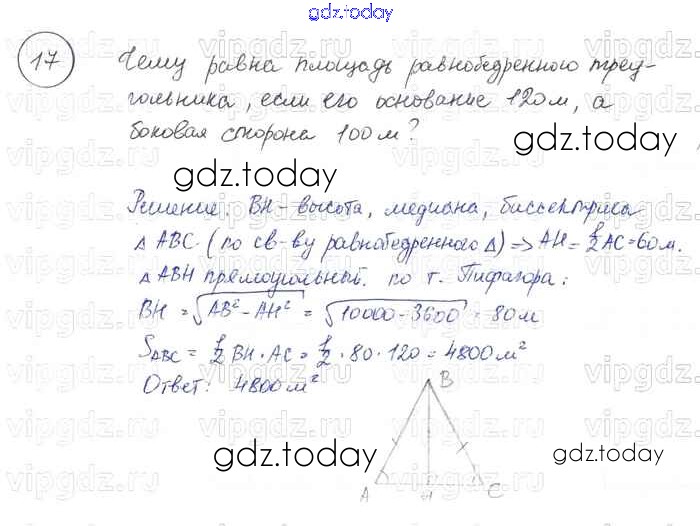 gdz.today
17 Чему равна площадь равнобедренного треу-
гольника, если его основание 120м, а
боковая сторона 100м?
gdz.today
gdz.today
Решение: BH - высота, медиана, биссектриса
△ ABC. (по св-ву равнобедренного △) => AH = 1/2 AC = 60 м.
△ ABH прямоугольный. по т. Пифагора:
BH = √AB² - AH² = √10000 - 3600 = 80 м
S ABC = 1/2 BH · AC = 1/2 · 80 · 120 = 4800 м²
Ответ: 4800 м²
B
gdz.today
gdz.today
A H C